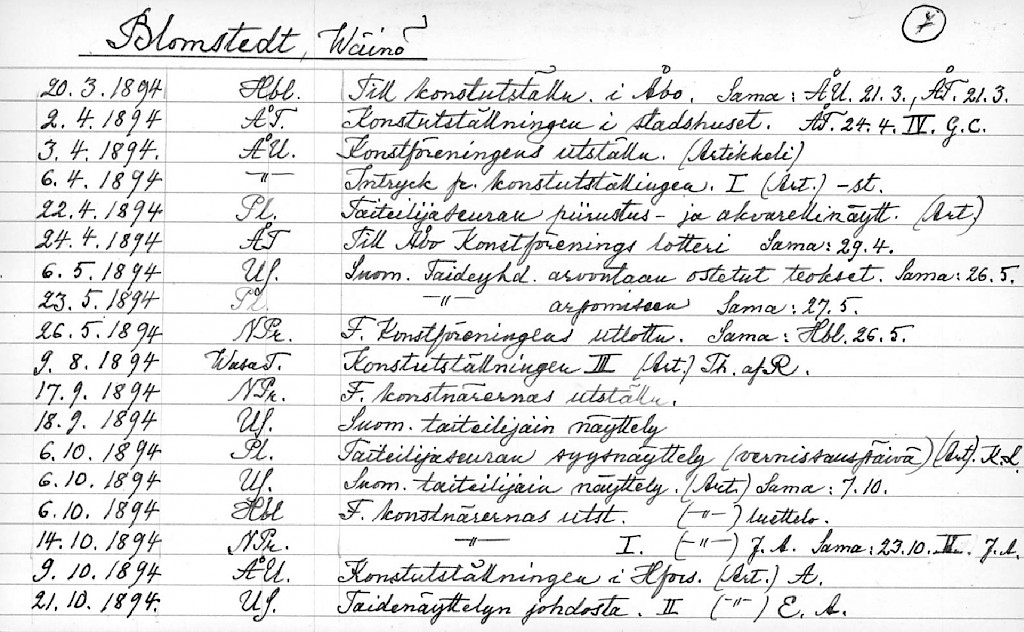 Blomstedt, Wäinö
20.3.1894 Hbl. Till konstutställn. i Åbo. Sama: ÅU. 21.3., ÅT. 21.3.
2.4.1894 ÅT. Konstutställningen i stadshuset. ÅT. 24.4. IV. G.C.
3.4.1894. ÅU. Konstföreningens utställn. (Artikkeli)
6.4.1894 —"— Intryck fr. konstutställningen. I (Art.) -st.
22.4.1894 Pl. Taiteilijaseuran piirustus- ja akvarellinäytt. (Art.)
24.4.1894 ÅT Till Åbo Konstförenings lotteri Sama: 29.4.
6.5.1894 US. Suom. Taideyhd. arvontaan ostetut teokset. Sama: 26.5.
23.5.1894 Pl. —"— arpomiseen Sama: 27.5.
26.5.1894 NPr. F. Konstföreningens utlottn. Sama: Hbl. 26.5.
9.8.1894 WasaT. Konstutställningen III (Art.) Th. af R.
17.9.1894 NPr. F. konstnärernas utställn.
18.9.1894 US. Suom. taiteilijain näyttely
6.10.1894 Pl. Taiteilijaseuran sygsnäyttely (vernissauspäivä) (Art). K.L.
6.10.1894 US. Suom. taiteilijain näyttely. (Art.) Sama: 7.10.
6.10.1894 Hbl F. konstnärernas utst. (—"—) luettelo.
14.10.1894 NPr. —"— I. (—"—) J.A. Sama: 23.10. V. J.A.
9.10.1894 ÅU. Konstutställningen i Hfors. (Art.) A.
21.10.1894. US. Taidenäyttelyn johdosta. II (—"—) E.A.